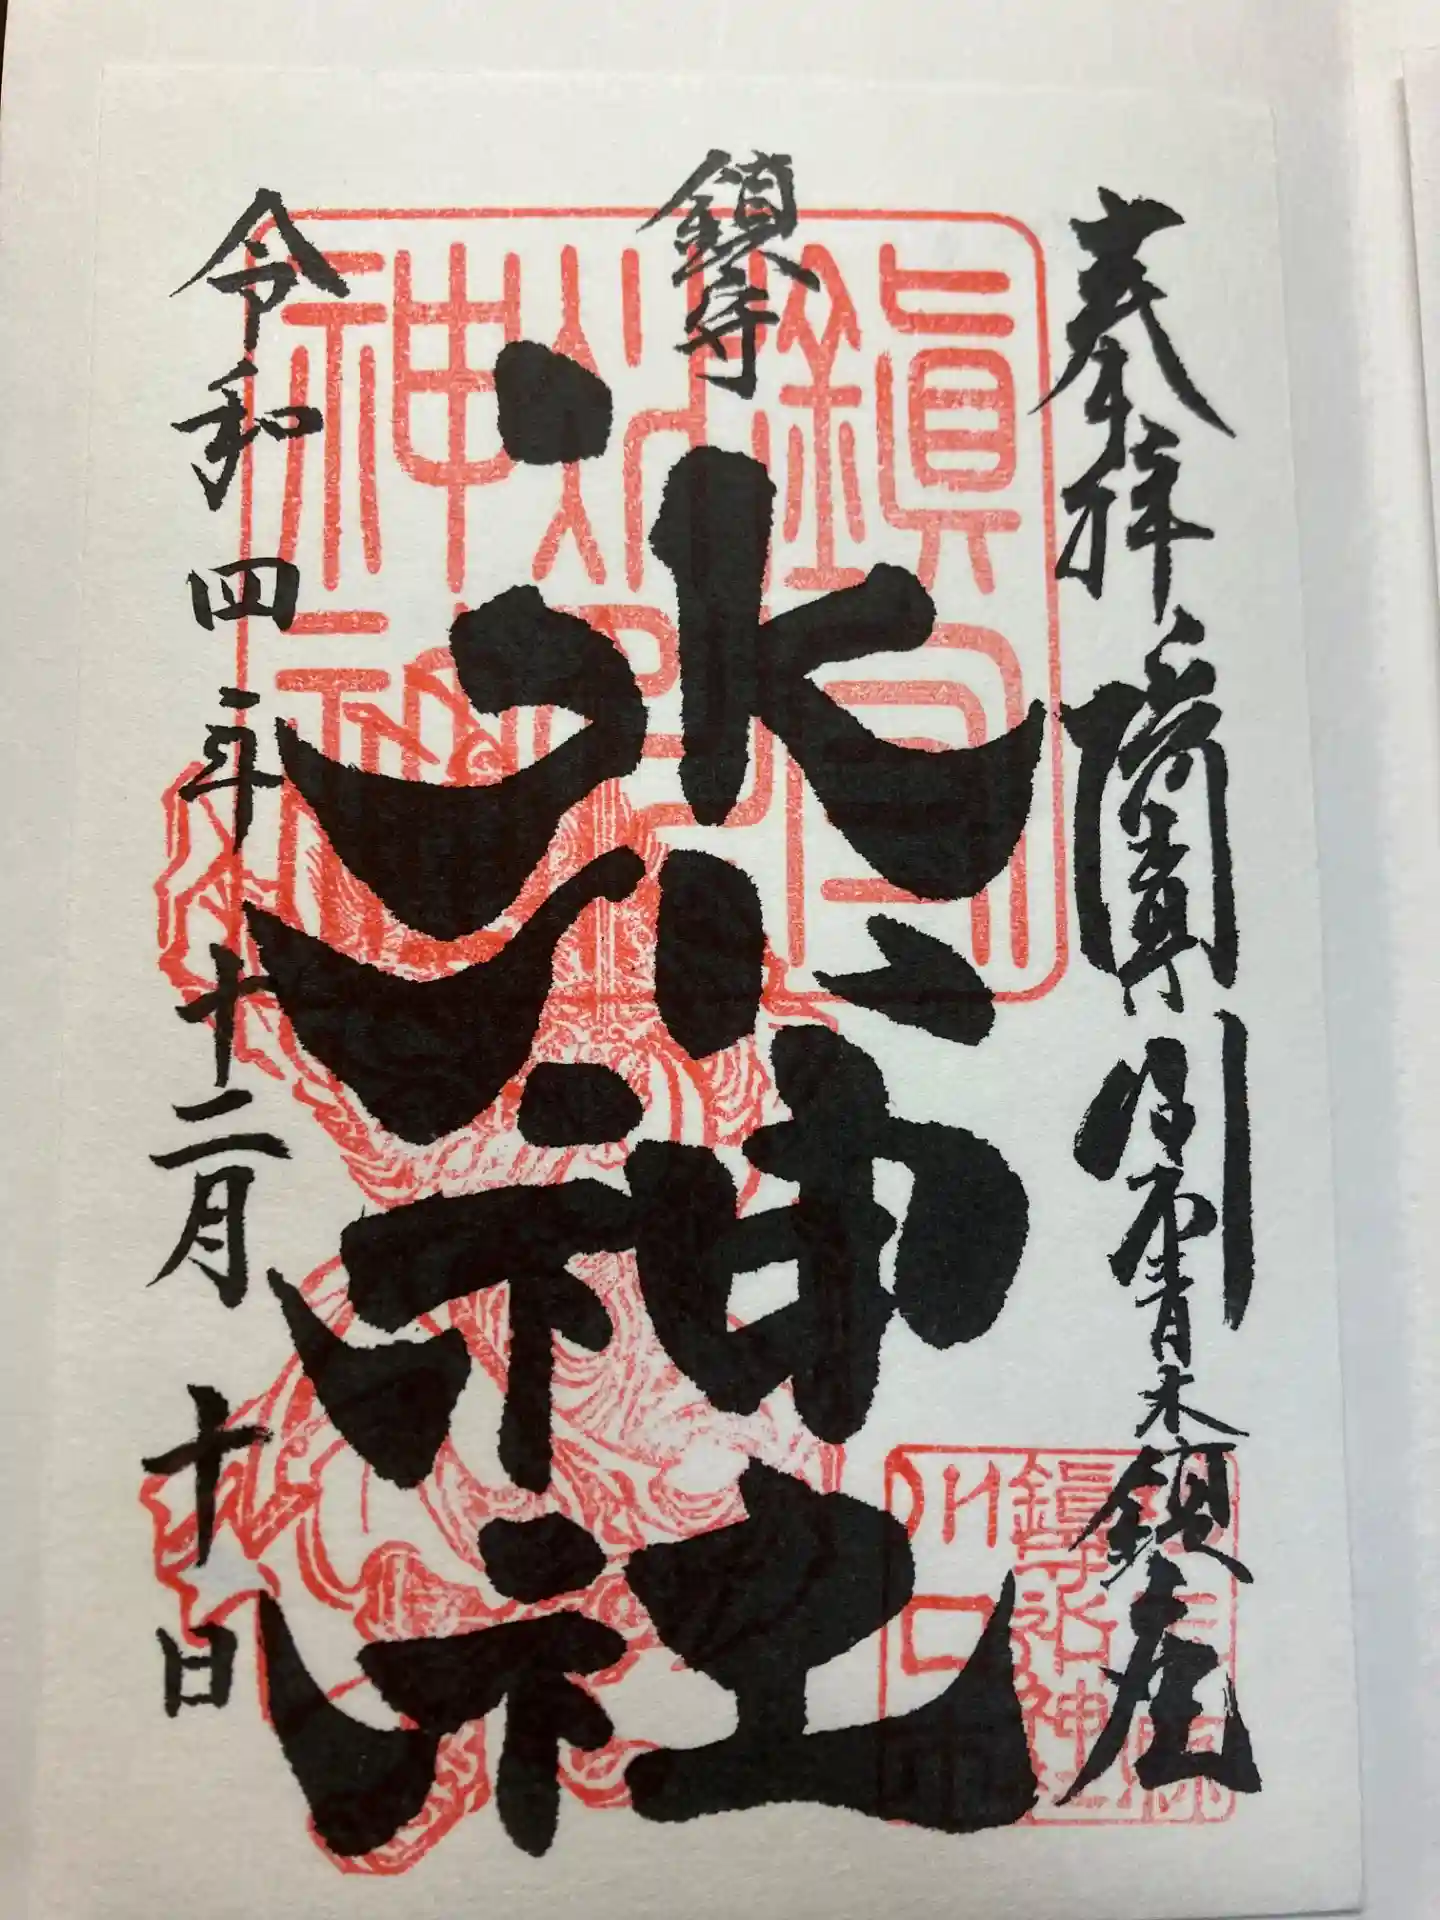 奉拝
川口市青木鎮座
鎮守
氷川神社
令和四年十二月十日
鎮守
氷川
神社
鎮守氷川神社
川口市